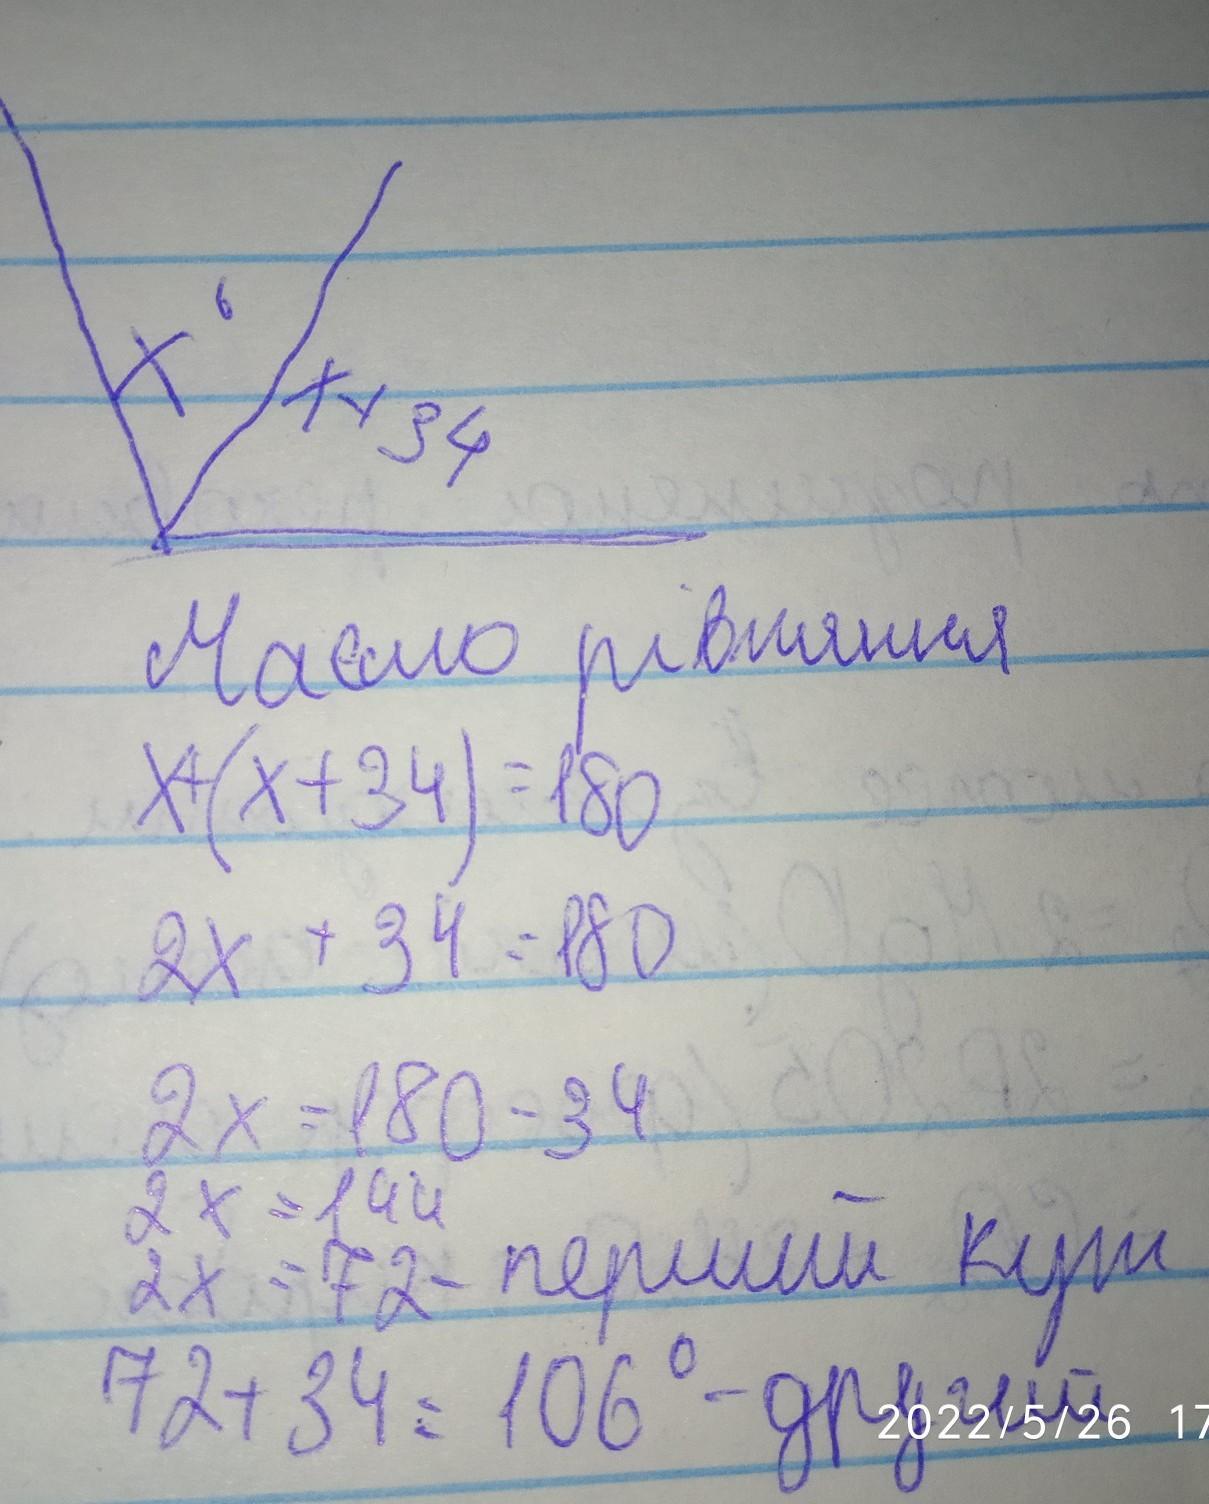 x°
x+34
Маємо рівняння
x+(x+34)=180
2x+34=180
2x=180-34
2x=144
2x=72- перший кут
72+34=106°-другий
2022/5/26 17